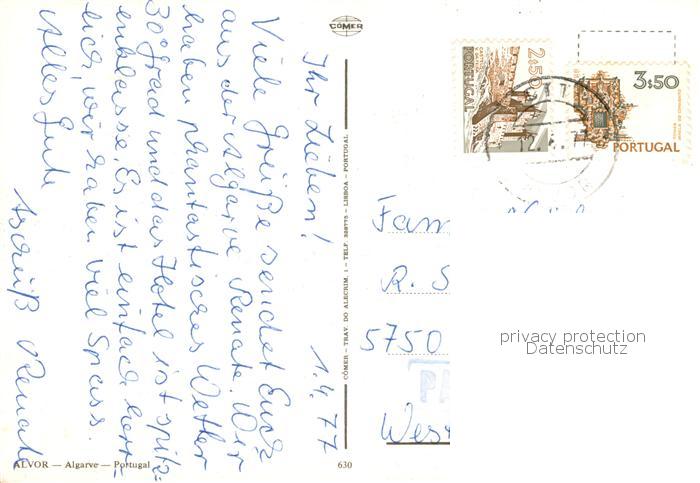 Ihr Lieben! 1.4.77
Viele Grüße sendet Euch
aus der Algarve Renate. Wir
haben phantastisches Wetter
30 grad und das Hotel ist spitz=
enklasse. Es ist einfach herr-
lich, wir haben viel Spass.
Alles Gute
Renate
CÔMER
CÔMER — TRAV. DO ALECRIM, 1 — TELF. 328775 — LISBOA — PORTUGAL
ALVOR — Algarve — Portugal
630
2$50
PORTUGAL
3$50
PORTUGAL
Fam
R. S
5750
West
privacy protection
Datenschutz